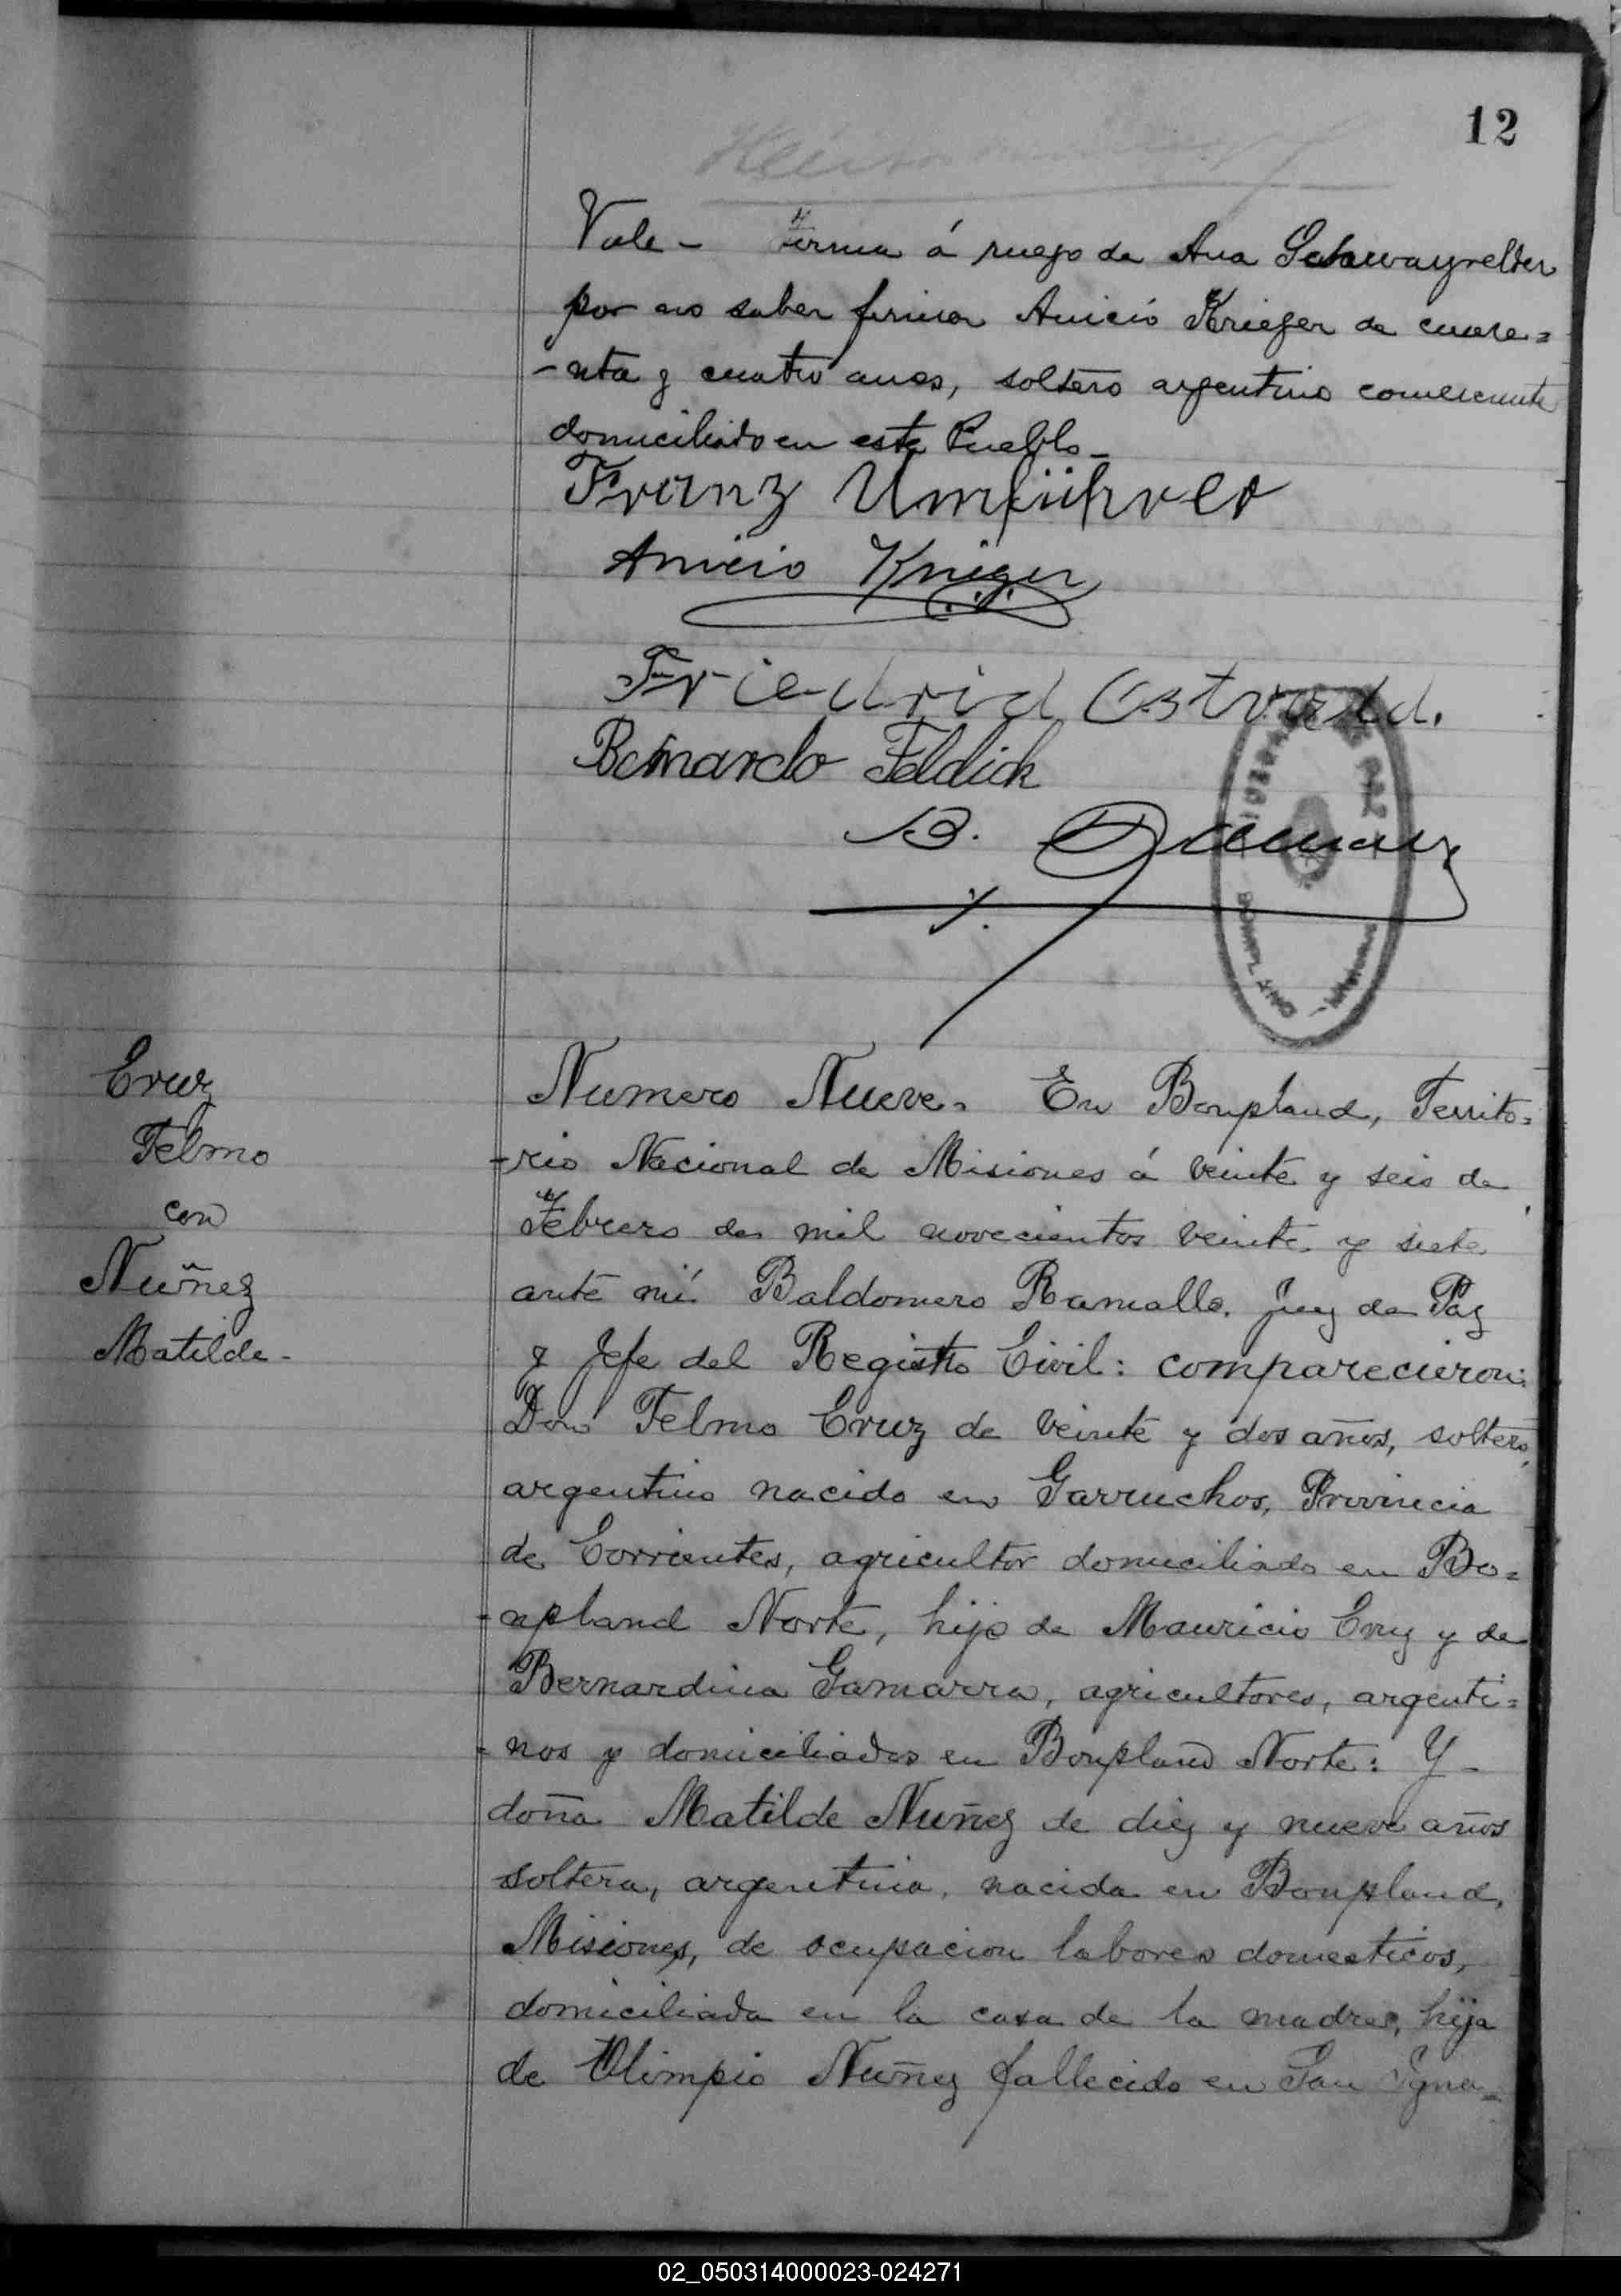 12
Vale - Firma á ruego de Ana
por no saber firmar Anicio Krieger de cuare=
-nta y cuatro anos, soltero argentino comerciante
domiciliado en este Pueblo_
Franz Umführer
Anicio Krieger
Friedrich
Bernardo Feldick
B.
Cruz
Telmo
con
Nuñez
Matilde-
Numero Nueve. En Bonpland, Territo=
-rio Nacional de Misiones á veinte y seis de
Febrero de mil novecientos veinte y siete
ante mí Baldomero Ramallo. Juez de Paz
y Jefe del Registro Civil: comparecieron:
Don Telmo Cruz de veinte y dos años, soltero,
argentino nacido en Garruchos, Provincia
de Corrientes, agricultor domiciliado en Bo=
-npland Norte, hijo de Mauricio Cruz y de
Bernardina Gamarra, agricultores, argenti=
-nos y domiciliados en Bonpland Norte: Y-
doña Matilde Nuñez de diez y nueve años
soltera, argentina, nacida en Bonpland,
Misiones, de ocupacion labores domesticos,
domiciliada en la casa de la madre, hija
de Olimpio Nuñez fallecido en San Igna=
02_050314000023-024271